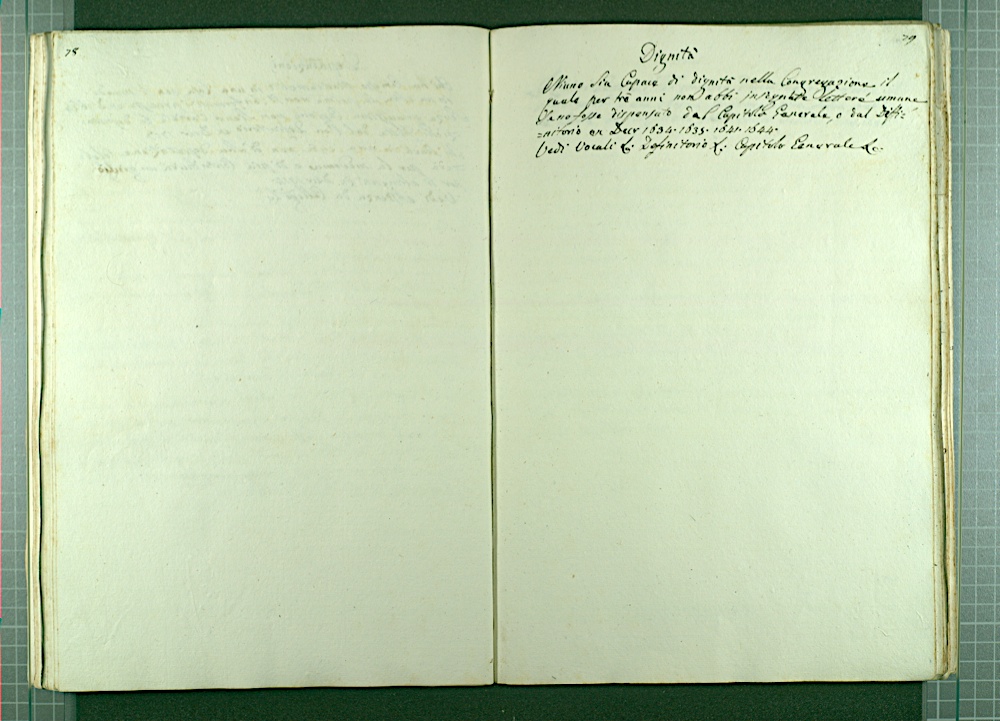 78
79
Dignità
Niuno sia Capace di dignità nella Congregazione il
quale per trè anni non abbi insegnate lettere umane
se no fosse dispensato dal Capitolo Generale, o dal Diffi-
=nitorio ex Decr 1634. 1635. 1641. 1644.
Vedi Vocali &. Definitorio &. Capitolo Generale &c.